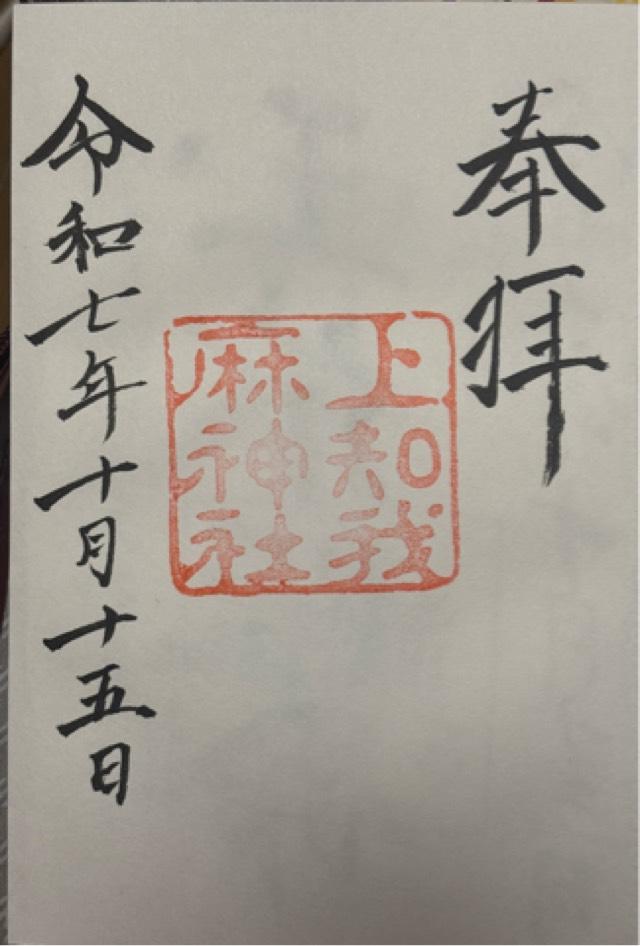 奉拝
上知我
麻神社
令和七年十月十五日